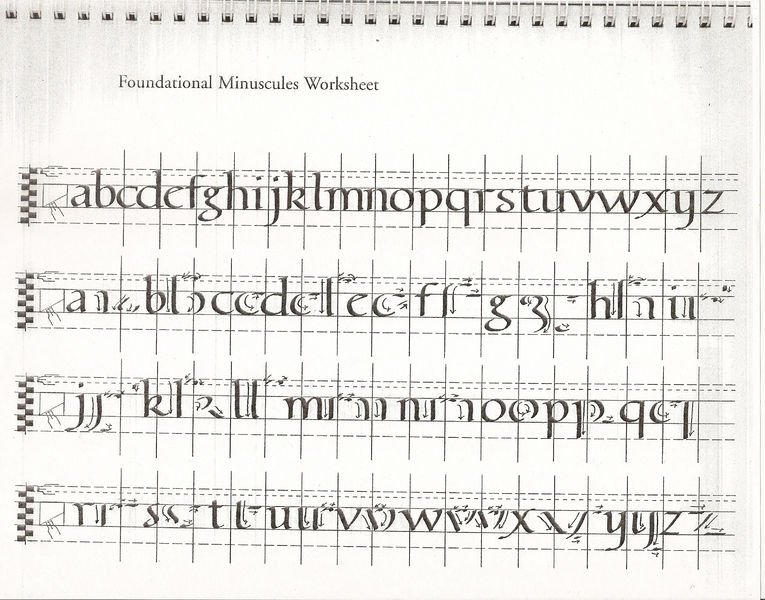 Foundational Minuscules Worksheet
abcdefghijklmnopqrstuvwxyz
a b c d e f g h i
j k l m n o p q
r s t u v w x y z